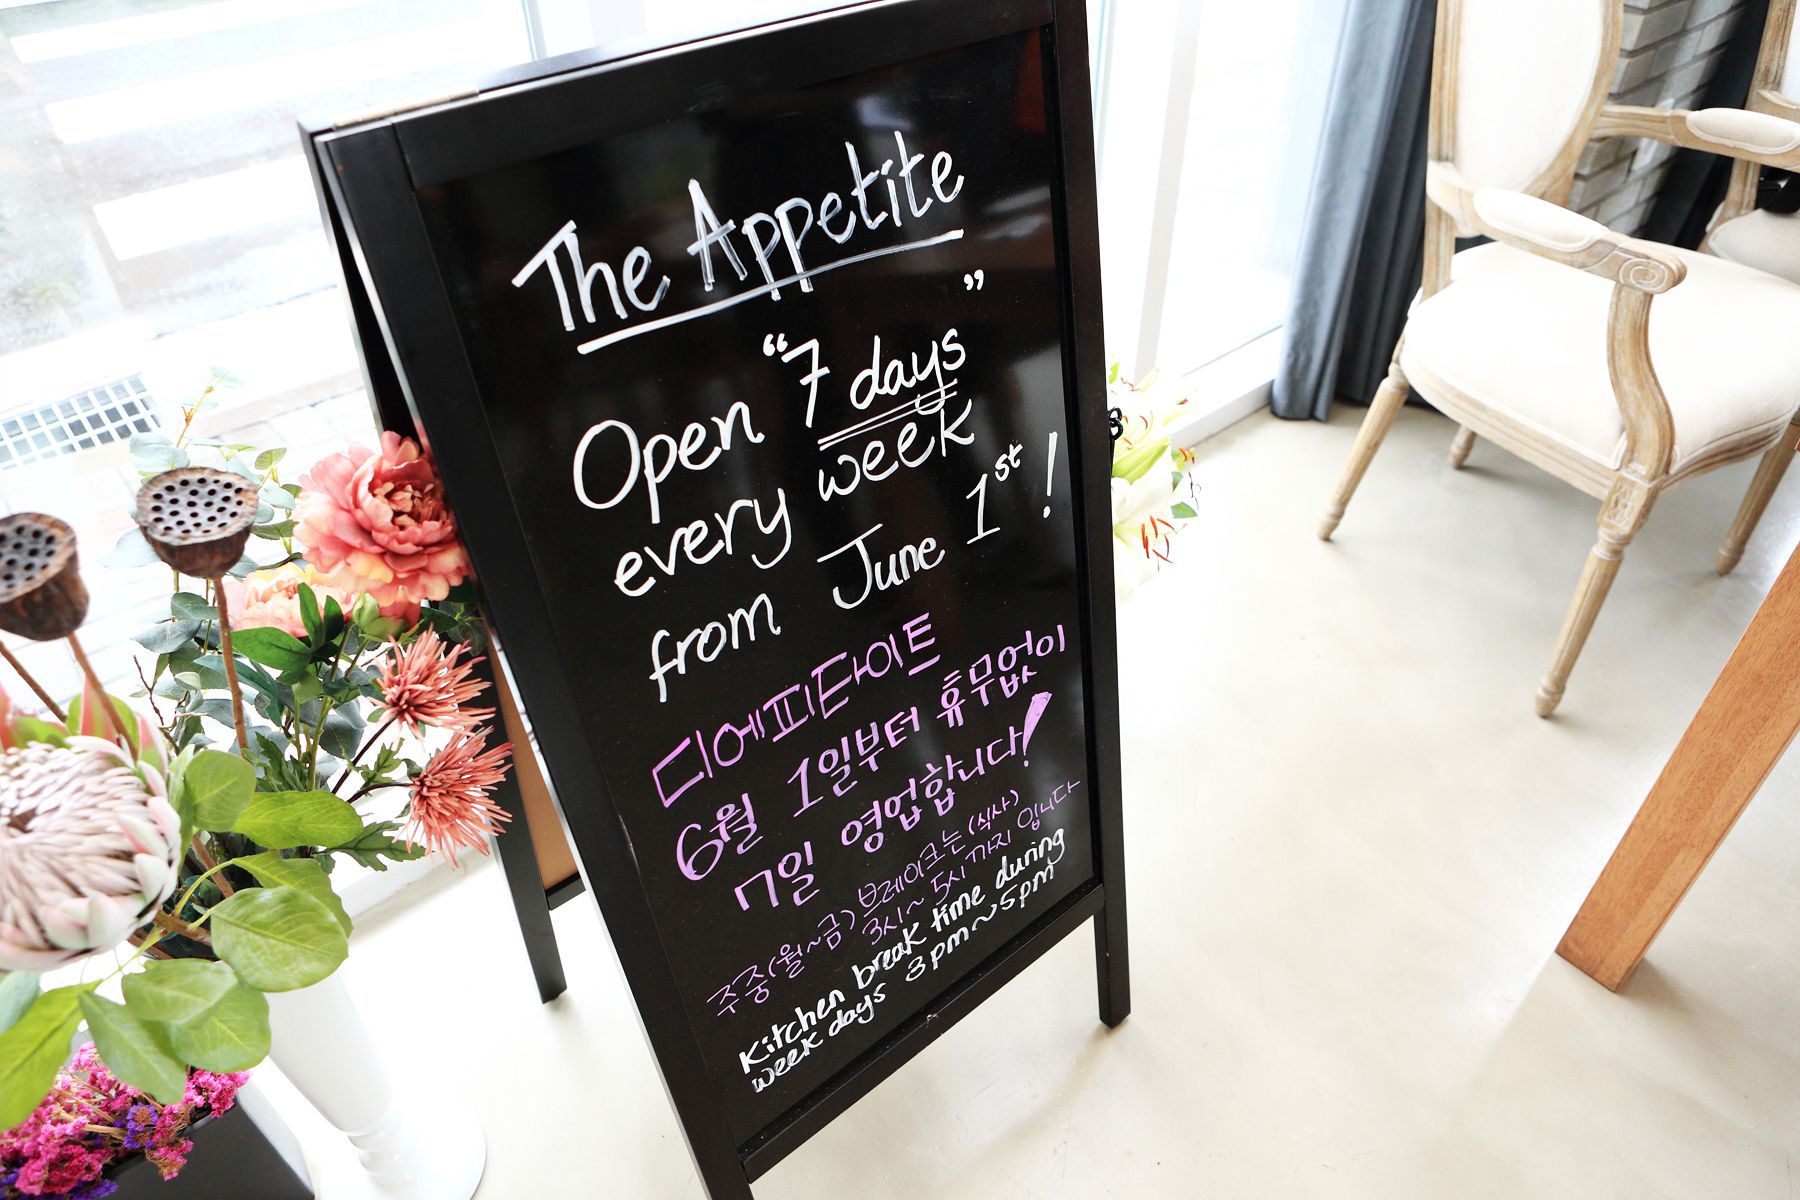 The Appetite
Open "7 days"
every week
from June 1st!
디에피타이트
6월 1일부터 휴무없이
7일 영업합니다!
주중(월~금) 브레이크는 (식사)
3시~5시 까지 입니다
Kitchen break time during
week days 3pm~5pm